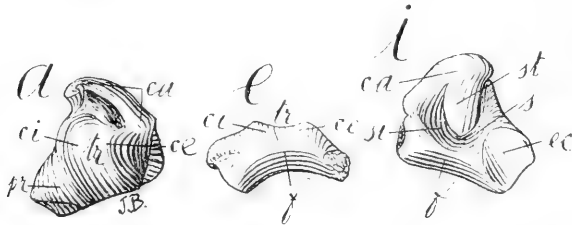 a
ca
ci
tr
ce
pr
J.B.
e
ci
tr
ci
f
i
ca
st
s
st
ec
f